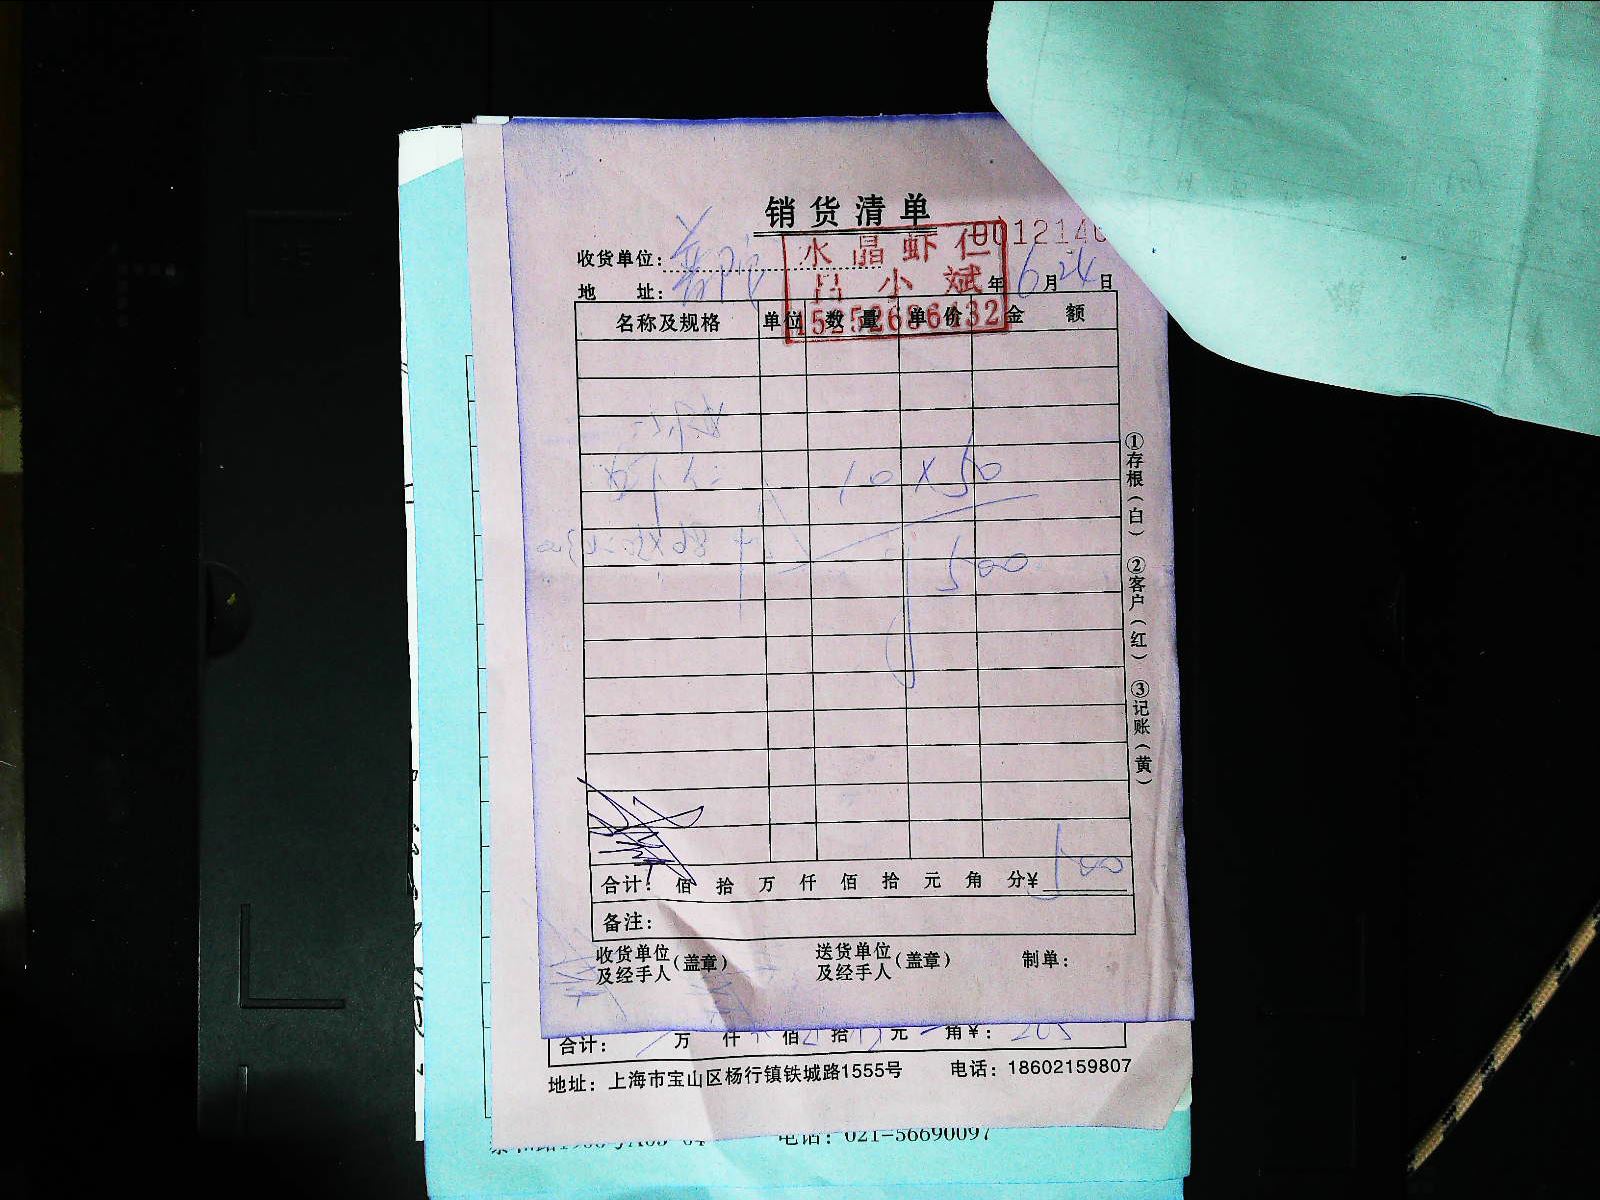 销货清单
0012140
收货单位：
水晶虾仁
吕小斌
15252686432
地 址： 年 6 月 24 日
名称及规格 单位 数量 单价 金额
虾仁 10 X 50
500
①存根（白） ②客户（红） ③记账（黄）
合计： 佰 拾 万 仟 佰 拾 元 角 分¥ 500
备注：
收货单位及经手人（盖章） 送货单位及经手人（盖章） 制单：
合计： 万 仟 佰 拾 元 角¥： 205
地址：上海市宝山区杨行镇铁城路1555号 电话：18602159807
电话：021-56690097